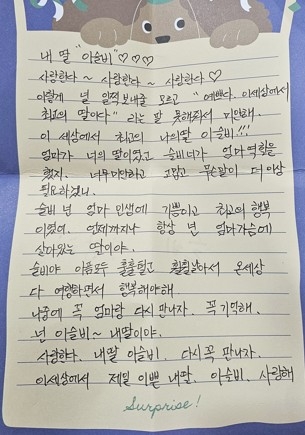 내 딸 "아슬비" ♡♡♡
사랑한다 ~ 사랑한다 ~ 사랑한다 ♡
이렇게 널 일찍 보내줄 모르고 "예쁘다. 이세상에서
최고의 딸이다" 라는 말 못해줘서 미안해.
이 세상에서 최고의 나의딸 아슬비!!!
엄마가 너의 딸이였고 슬비너가 엄마 역할을
했지. 너무미안하고 고맙고 무슨말이 더이상
필요하겠니.
슬비 넌 엄마 인생에 기쁨이고 최고의 행복
이였어. 언제까지나 항상 넌 엄마가슴에
살아있는 딸이야.
슬비야 아픔모두 훌훌털고 훨훨날아서 온세상
다 여행하면서 행복해야해
나중에 꼭 엄마랑 다시 만나자. 꼭 기억해.
넌 아슬비~ 내딸이야.
사랑한다. 내딸 아슬비. 다시 꼭 만나자.
이세상에서 제일 이쁜 내딸. 아슬비. 사랑해
Surprise!